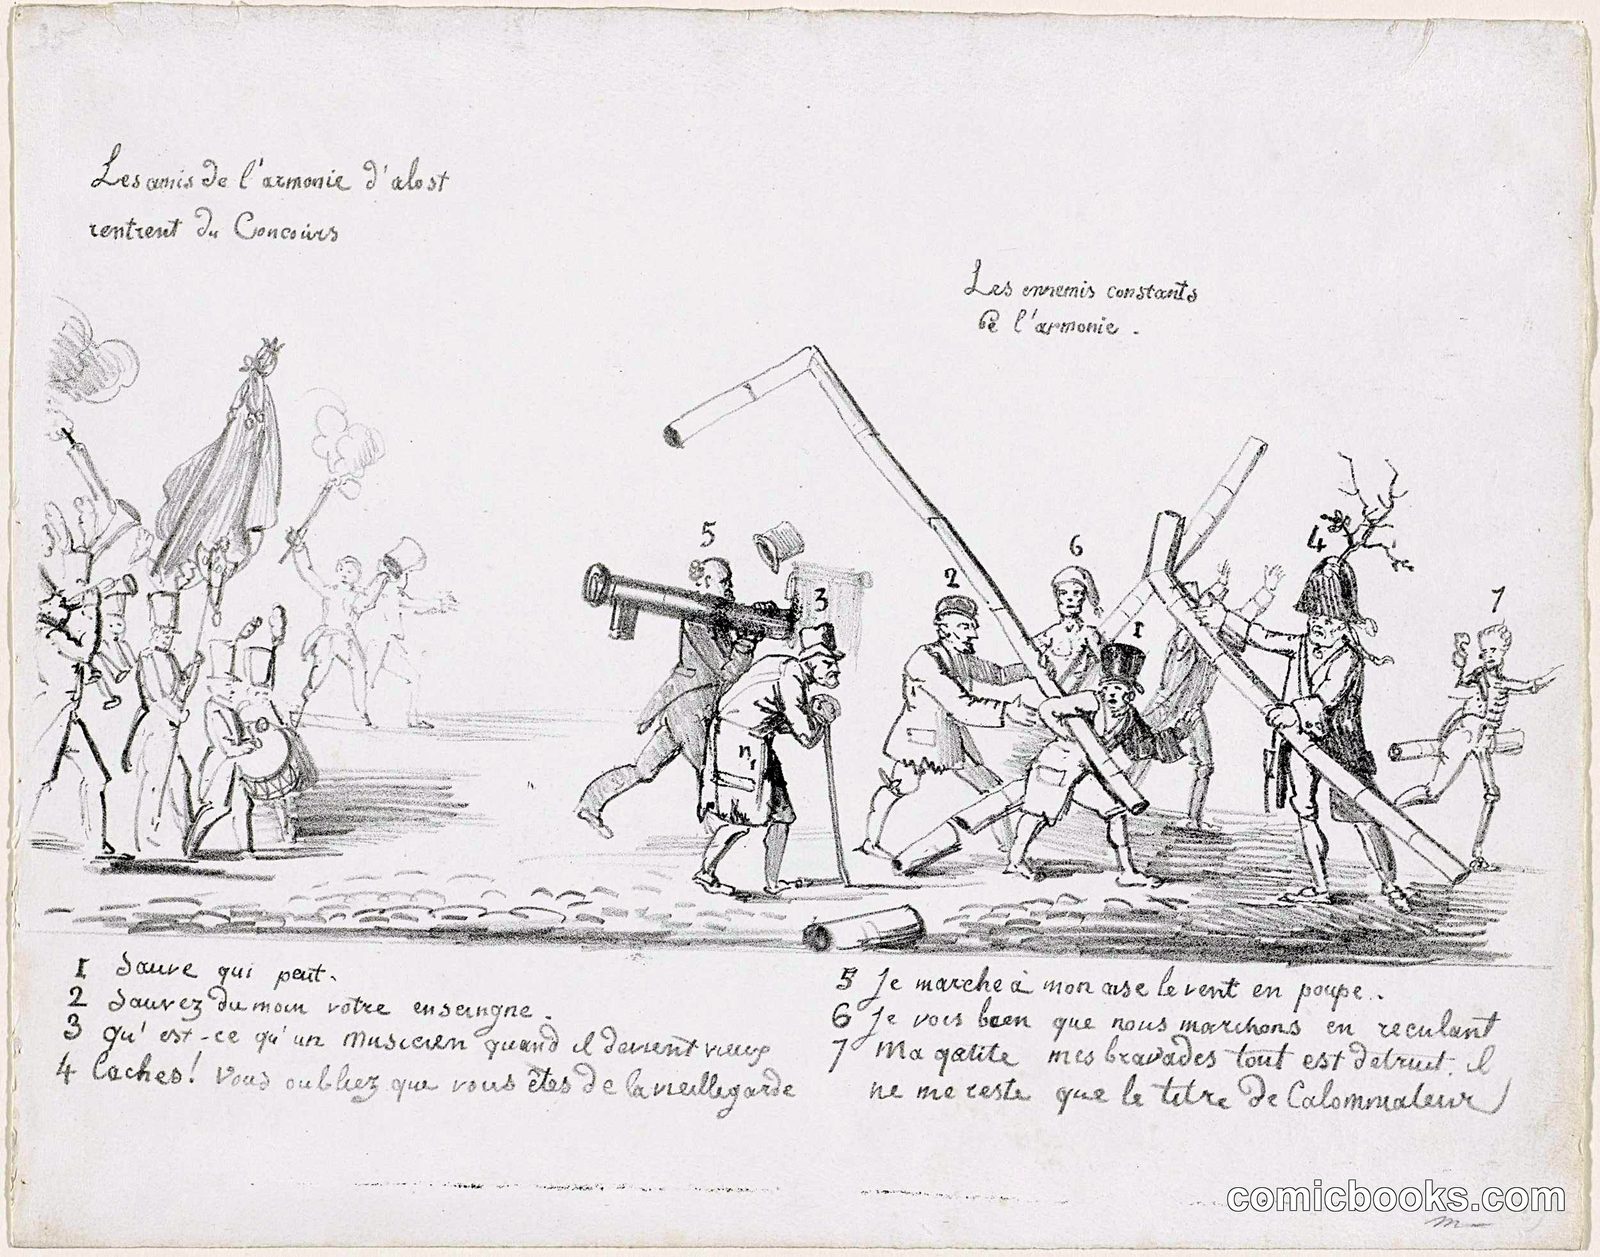 Les amis de l'armonie d'alost
rentrent du Concours
Les ennemis constants
de l'armonie.
5
3
2
6
1
4
7
n 1
1 Sauve qui peut.
2 Sauvez du moin votre enseingne.
3 qu'est-ce qu'un musicien quand il devient vieux
4 laches! vous oubliez que vous êtes de la vieillegarde
5 Je marche à mon aise le vent en poupe..
6 Je vois been que nous marchons en reculant
7 Ma gaiite mes bravades tout est detruit. il
ne me reste que le titre de Calommateur
comicbooks.com